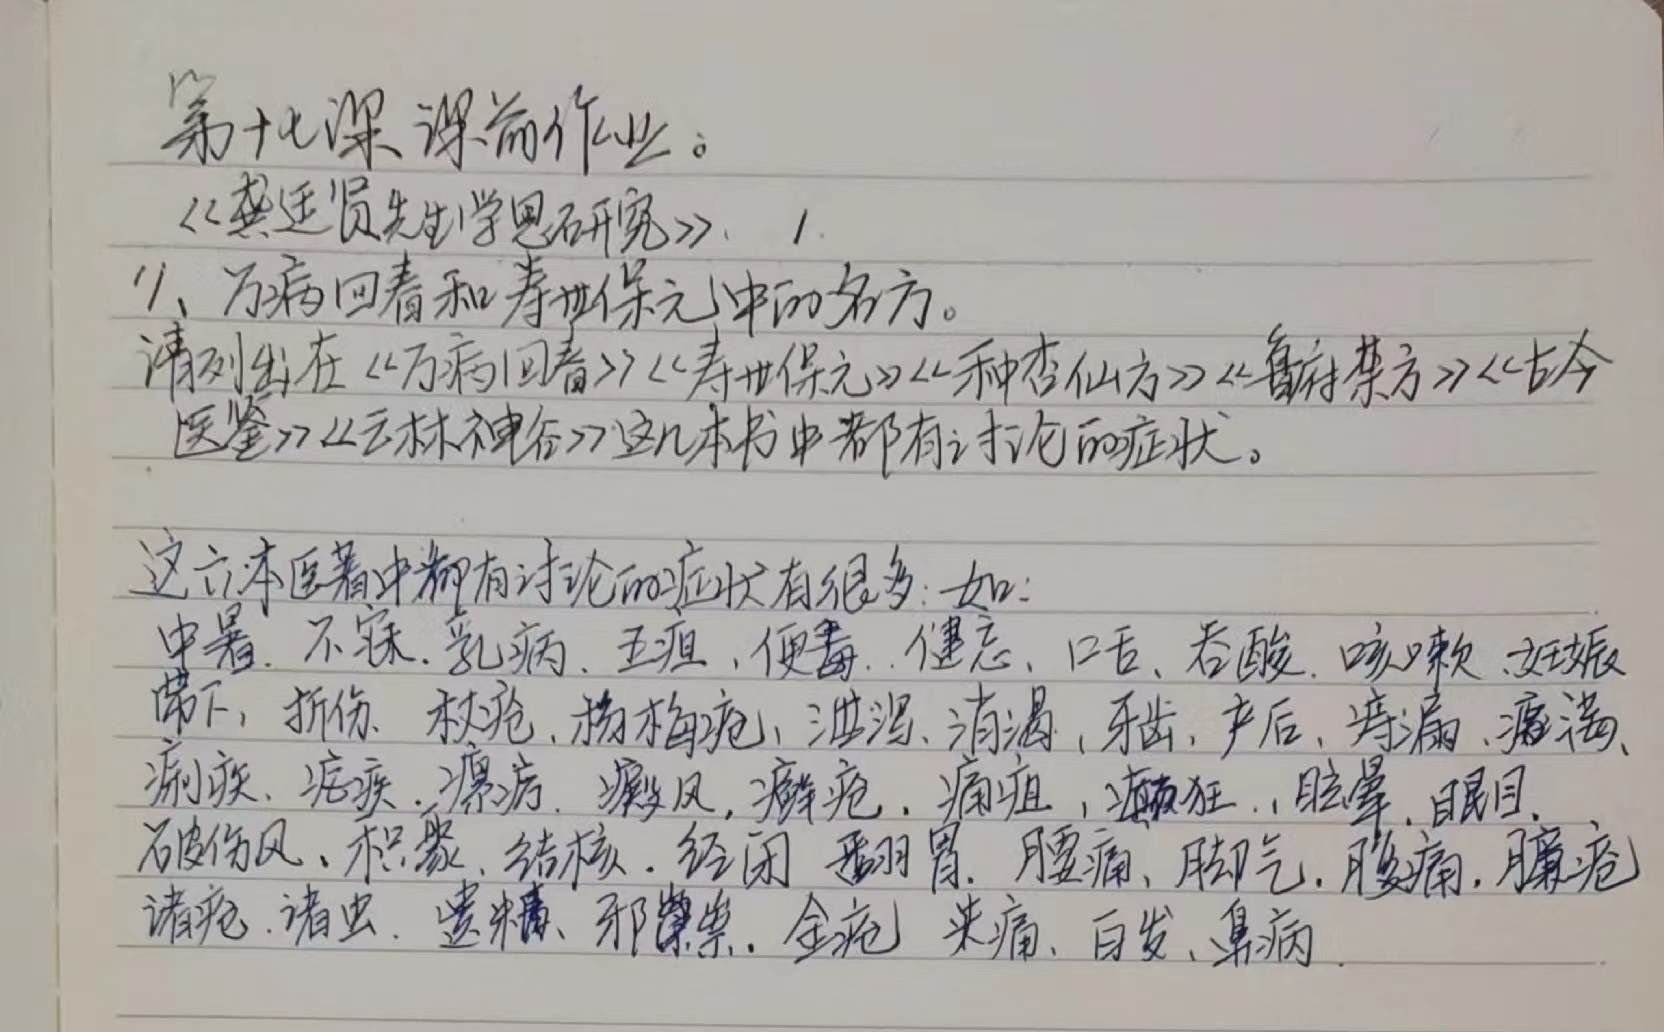 第十七课 课前作业。
《龚廷贤先生学思研究》. 1.
1)、万病回春和寿世保元中的名方。
请列出在《万病回春》《寿世保元》《种杏仙方》《鲁府禁方》《古今
医鉴》《云林神谷》这几本书中都有讨论的症状。
这六本医著中都有讨论的症状有很多: 如:
中暑. 不寐. 乳病、五疸、便毒. 健忘、口舌、吞酸. 咳嗽、妊娠
带下, 折伤、杖疮、杨梅疮、泄泻、消渴、牙齿、产后、痔漏、痞满、
痢疾、疟疾. 瘰疬. 癜风, 癣疮. 痈疽, 癫狂, 眩晕. 眼目.
破伤风、积聚、结核. 经闭 翻胃. 腰痛、脚气. 腹痛. 臁疮
诸疮. 诸虫. 遗精、邪祟. 金疮 头痛、白发、鼻病.